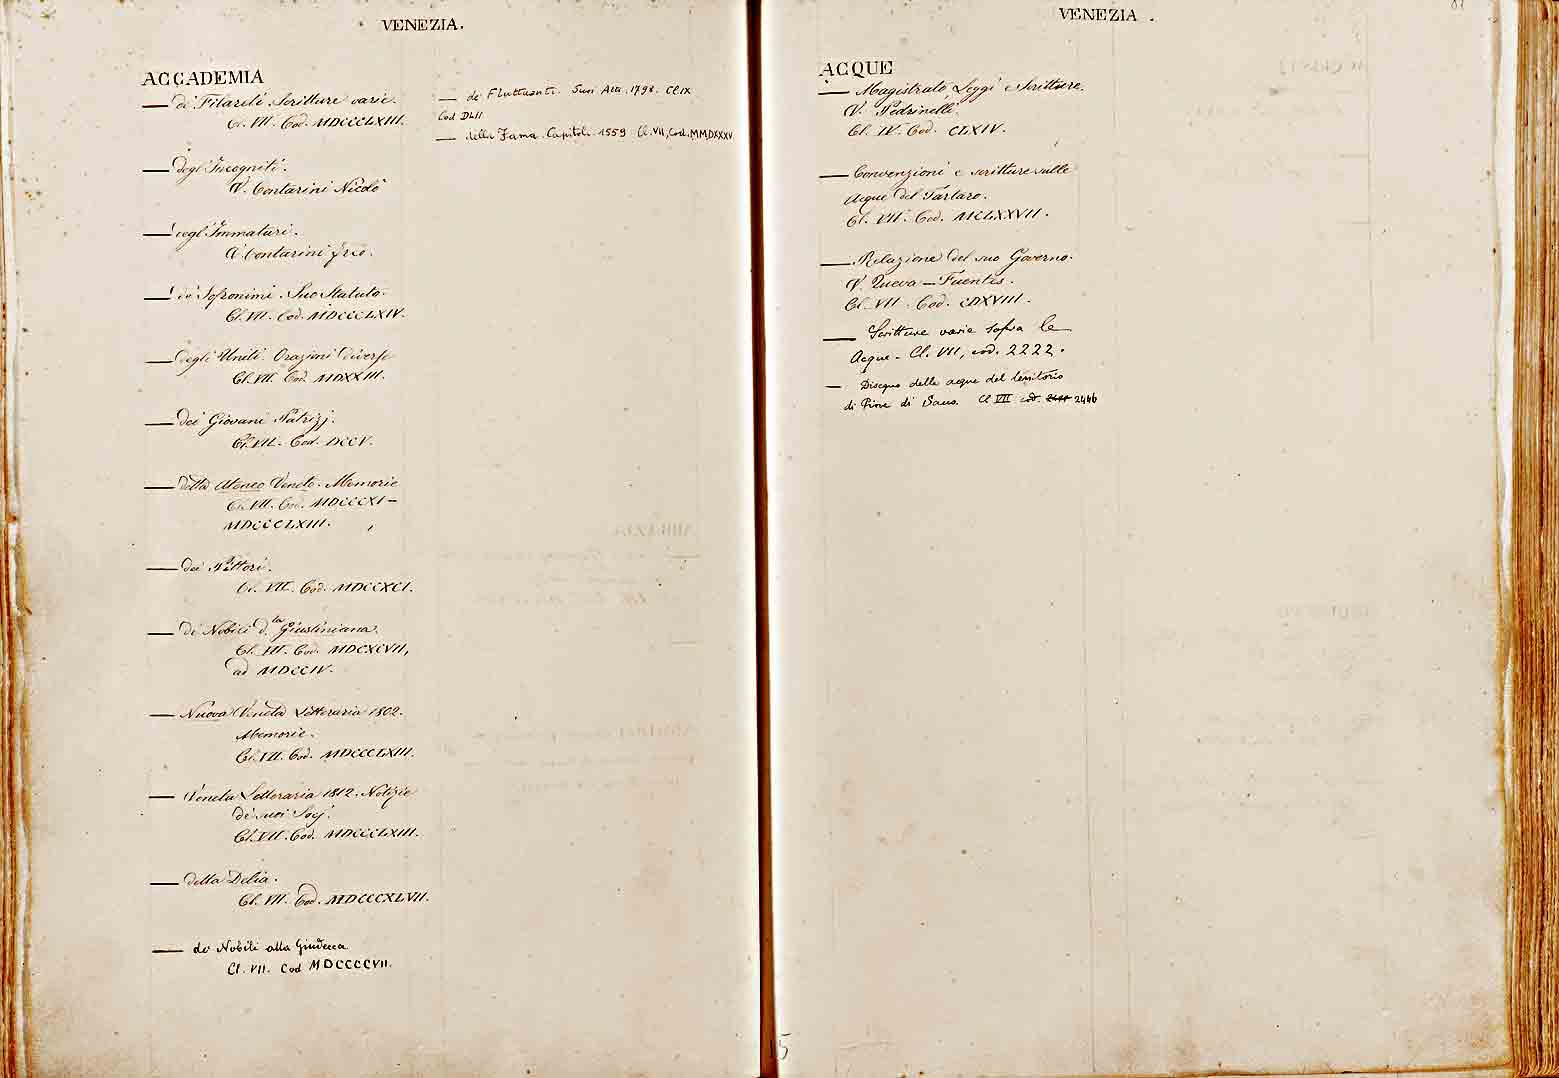 VENEZIA.
ACCADEMIA
— de' Filareti. Scritture varie.
Cl. VII. Cod. MDCCCLXIII.
— degl'Incogniti.
V. Contarini Nicolò
— degl'Immaturi.
V. Contarini
— de' Sofronimi. Suo Statuto.
Cl. VII. Cod. MDCCCLXIV.
— degli Uniti. Orazioni diverse
Cl. VII. Cod. MDXXIII.
— dei Giovani Patrizj.
Cl. VII. Cod. DCCV.
— della Ateneo Veneto. Memorie
Cl. VII. Cod. MDCCCXI —
MDCCCLXIII.
— dei Pittori.
Cl. VII. Cod. MDCCXCI.
— de' Nobili d.ta Giustiniana.
Cl. VII. Cod. MDCXCVII,
ad MDCCIV.
— Nuova Veneta Letteraria 1802.
Memorie.
Cl. VII. Cod. MDCCCLXIII.
— Veneta Letteraria 1812. Notizie
de' suoi Socj.
Cl. VII. Cod. MDCCCLXIII.
— della Delia.
Cl. VII. Cod. MDCCCXLVII.
— de' Nobili alla Giudecca
Cl. VII. Cod MDCCCCVII.
— de' Fluttuanti. Suoi Atti. 1798. Cl IX
Cod DLII
— della Fama. Capitoli. 1559 Cl. VII, Cod. MMDXXXV
VENEZIA.
ACQUE
— Magistrato Leggi e Scritture.
V. Pedrinelli.
Cl. IV. Cod. CLXIV.
— Convenzioni e scritture sulle
Acque del Tartaro.
Cl. VII. Cod. MCLXXVII.
— Relazione del suo Governo.
V. Queva — Fuentes.
Cl. VII. Cod. CDXVIII.
— Scritture varie sopra le
Acque - Cl. VII, cod. 2222.
— Disegno delle acque del territorio
di Piove di Sacco. Cl VII cod. 2446
15